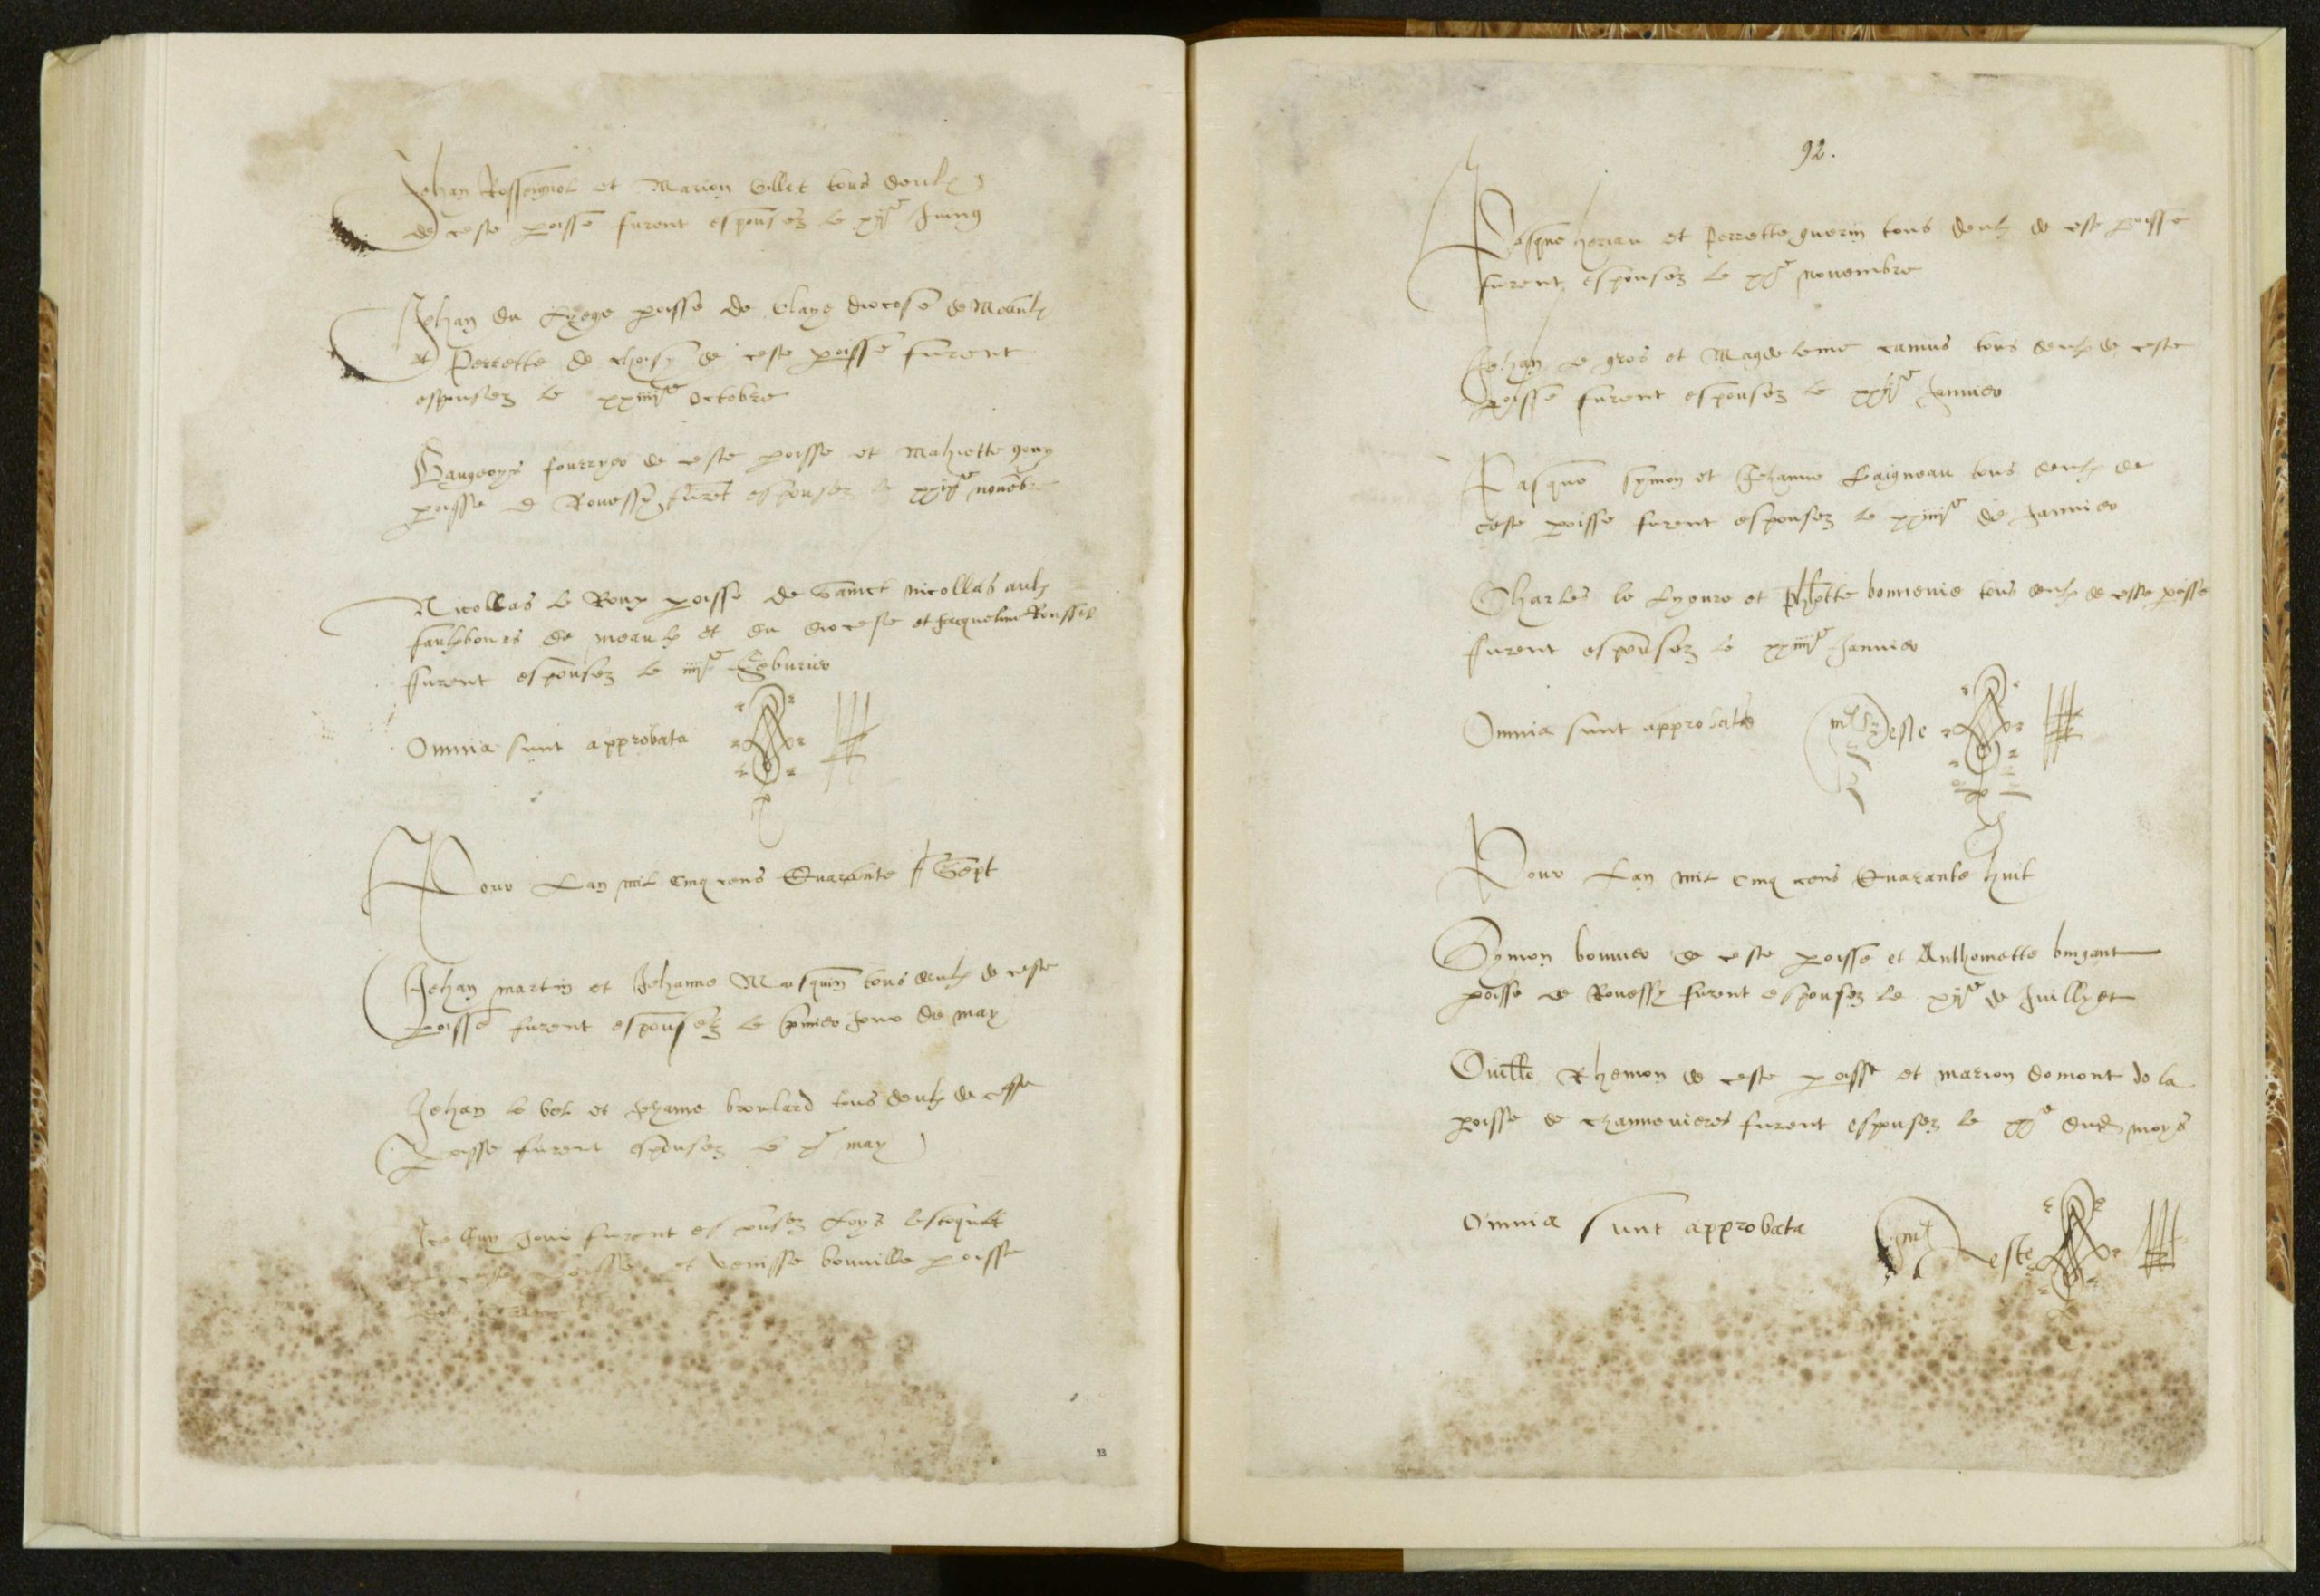 Jehan Rossignol et Marion Gillet tous deulx
de ceste poisse furent espousez le xije Juing
Jehan du Liege poisse de Claye diocese de Meaulx
et Perrette de choisy de ceste poisse furent
espousez le xxiiije octobre
fourryer de ceste poisse et Mahiette
poisse de Rouessy furet espousez le xxije novebre
Nicollas le Roux poisse de Sainct nicollas aulx
faulxbours de meaulx et du diocese et Jacqueline Roussel
furent espousez le iiije Feburier
Omnia sunt approbata
Pour Lan mil cinq cens Quarante Sept
Jehan martin et Jehanne Masquin tous deulx de ceste
poisse furent espousez le pmier jour de may
Jehan le bel et Jehanne broulard tous deulx de ceste
poisse furent espousez le xe may
Icelluy jour furent espousez Loys
de ceste poisse et Denisse bouville poisse
92.
Pasque heriau et Perrette guerin tous deulx de ceste poisse
furent espousez le xxe novembre
Jehan Le gros et Magdeleine camus tous deulx de ceste
poisse furent espousez le xxije Janvier
Pasque symon et Jehanne Laigneau tous deulx de
ceste poisse furent espousez le xxiiije de Janvier
Charles le Lyeure et tous deulx de ceste poisse
furent espousez le xxiiije Janvier
Omnia sunt approbata
Pour Lan mil cinq cens Quarante huit
Symon bouvier de ceste poisse et Anthoinette bugant
poisse de Rouessy furent espousez le xije de Juillyet
Guille Rhemon de ceste poisse et marion domont de la
poisse de channevieres furent espousez le xxe dud moys
Omnia sunt approbata